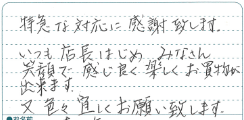 特急な対応に感謝致します。
いつも店長はじめ みなさん
笑顔で 感じ良く 楽しくお買物が
出来ます。
又色々宜しくお願い致します。